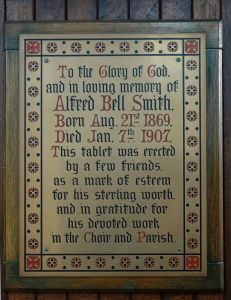 To the Glory of God,
and in loving memory of
Alfred Bell Smith,
Born Aug. 21st 1869.
Died Jan. 7th 1907.
This tablet was erected
by a few friends,
as a mark of esteem
for his sterling worth,
and in gratitude for
his devoted work
in the Choir and Parish.